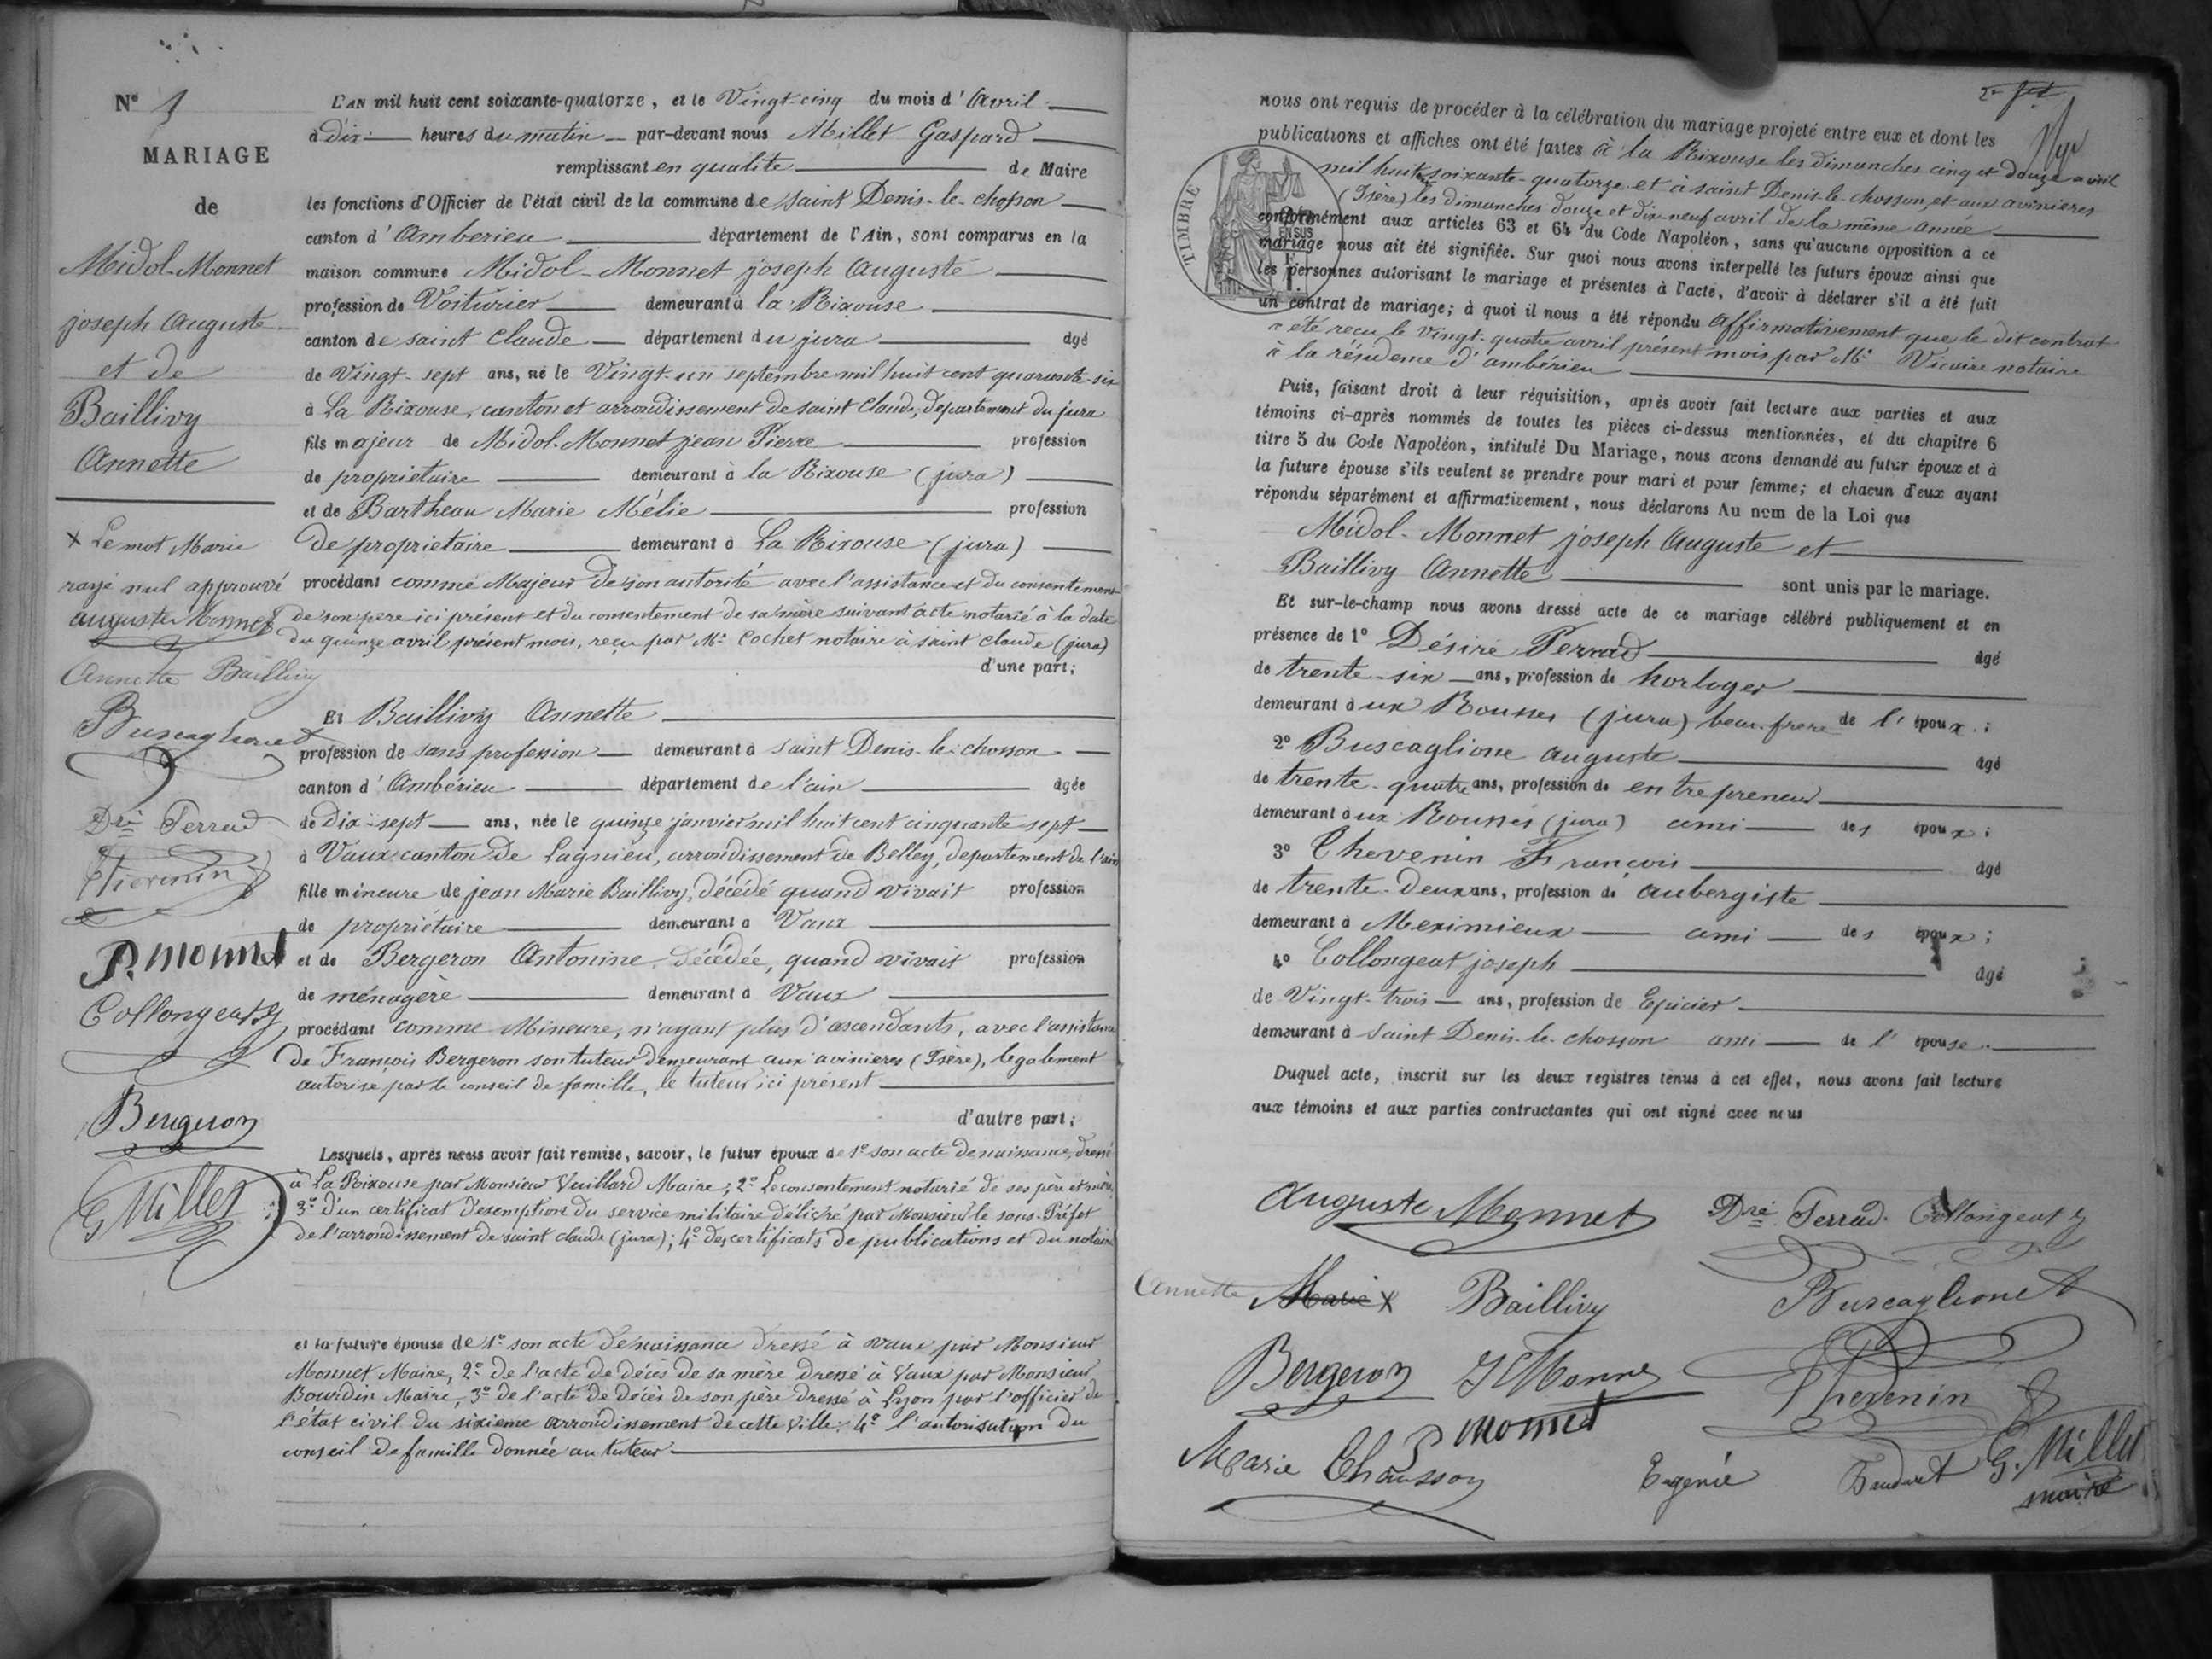 N° 1
MARIAGE
de
Midol-Monnet
joseph Auguste
et de
Baillivy
Annette
X Le mot Marie
rayé nul approuvé
auguste Monnet
Annette Baillivy
Buscaglione
Dré Perrad
Thevenin
P. monnet
Collongeat J
Bergeron
G Millet
L'AN mil huit cent soixante-quatorze, et le Vingt-cinq du mois d'Avril
à dix heures du matin par-devant nous Millet Gaspard
remplissant en qualité de Maire
les fonctions d'Officier de l'état civil de la commune de saint Denis-le-chosson
canton d'Amberieu département de l'Ain, sont comparus en la
maison commune Midol-Monnet joseph Auguste
profession de Voiturier demeurant à la Rixouse
canton de saint Claude département du jura âgé
de Vingt-sept ans, né le Vingt-un septembre mil huit cent quarante-six
à La Rixouse, canton et arrondissement de saint Claude, departement du jura
fils majeur de Midol-Monnet jean Pierre profession
de propriétaire demeurant à la Rixouse (jura)
et de Bartheau Marie Mélie profession
de propriétaire demeurant à La Rixouse (jura)
procédant comme Majeur de son autorité avec l'assistance et du consentement
de son père ici présent et du consentement de sa mère suivant acte notarié à la date
du quinze avril présent mois, reçu par Me Cochet notaire à saint claude (jura)
d'une part;
Et Baillivy Annette
profession de sans profession demeurant à saint Denis-le-chosson
canton d'Ambérieu département de l'ain âgée
de Dix-sept ans, née le quinze janvier mil huit cent cinquante sept
à Vaux canton de Lagnieu, arrondissement de Belley, departement de l'ain
fille mineure de jean Marie Baillivy, décédé quand vivait profession
de propriétaire demeurant à Vaux
et de Bergeron Antonine, décédée, quand vivait profession
de ménagère demeurant à Vaux
procédant comme Mineure, n'ayant plus d'ascendants, avec l'assistance
de François Bergeron son tuteur demeurant aux avinieres (Isère), légalement
autorisé par le conseil de famille, le tuteur ici présent
d'autre part;
Lesquels, après nous avoir fait remise, savoir, le futur époux de 1° son acte de naissance, dressé
à La Rixouse par Monsieur Vuillard Maire; 2° Le consentement notarié de ses père et mère,
3° d'un certificat d'exemption du service militaire délivré par Monsieur le sous-Préfet
de l'arrondissement de saint claude (jura); 4° des certificats de publications et du notaire
et la future épouse de 1° son acte de naissance dressé à vaux par Monsieur
Monnet Maire, 2° de l'acte de décès de sa mère dressé à Vaux par Monsieur
Bourdin Maire, 3° de l'acte de décès de son père dressé à Lyon par l'officier de
l'état civil du sixieme arrondissement de cette ville; 4° l'autorisation du
conseil de famille donnée au tuteur
nous ont requis de procéder à la célébration du mariage projeté entre eux et dont les
publications et affiches ont été faites à la Rixouse les dimanches cinq et douze avril
mil huit soixante-quatorze et à saint Denis-le-chosson, et aux avinieres
(Isère) les dimanches douze et dix-neuf avril de la même année
conformément aux articles 63 et 64 du Code Napoléon, sans qu'aucune opposition à ce
mariage nous ait été signifiée. Sur quoi nous avons interpellé les futurs époux ainsi que
les personnes autorisant le mariage et présentes à l'acte, d'avoir à déclarer s'il a été fait
un contrat de mariage; à quoi il nous a été répondu Affirmativement que le dit contrat
a été reçu le Vingt-quatre avril présent mois par Me Vicaire notaire
à la résidence d'ambérieu
TIMBRE
EN SUS
Puis, faisant droit à leur réquisition, après avoir fait lecture aux parties et aux
témoins ci-après nommés de toutes les pièces ci-dessus mentionnées, et du chapitre 6
titre 5 du Code Napoléon, intitulé Du Mariage, nous avons demandé au futur époux et à
la future épouse s'ils veulent se prendre pour mari et pour femme; et chacun d'eux ayant
répondu séparément et affirmativement, nous déclarons Au nom de la Loi que
Midol-Monnet joseph Auguste et
Baillivy Annette sont unis par le mariage.
Et sur-le-champ nous avons dressé acte de ce mariage célébré publiquement et en
présence de 1° Désiré Perrad âgé
de trente-six ans, profession de horloger
demeurant aux Rousses (jura) beau-frere de l'époux;
2° Buscaglione auguste âgé
de trente-quatre ans, profession de entrepreneur
demeurant aux Rousses (jura) ami des époux;
3° Thevenin François âgé
de trente-deux ans, profession de aubergiste
demeurant à Meximieux ami des époux;
4° Collongeat joseph âgé
de Vingt-trois ans, profession de Epicier
demeurant à Saint Denis-le-chosson ami de l'épouse
Duquel acte, inscrit sur les deux registres tenus à cet effet, nous avons fait lecture
aux témoins et aux parties contractantes qui ont signé avec nous
Auguste Monnet Dré Perrad Collongeat J
Annette Marie X Baillivy Buscaglione
Bergeron Monnet Thevenin
P monnet
Marie Chausson Eugenie G. Millet
maire